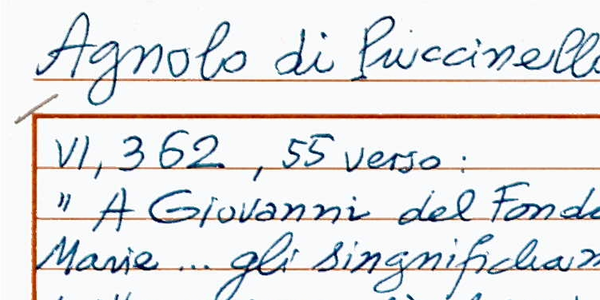 Agnolo di Puccinello
VI, 362, 55 verso:
" A Giovanni del Fonda
Marie ... gli singnifichan